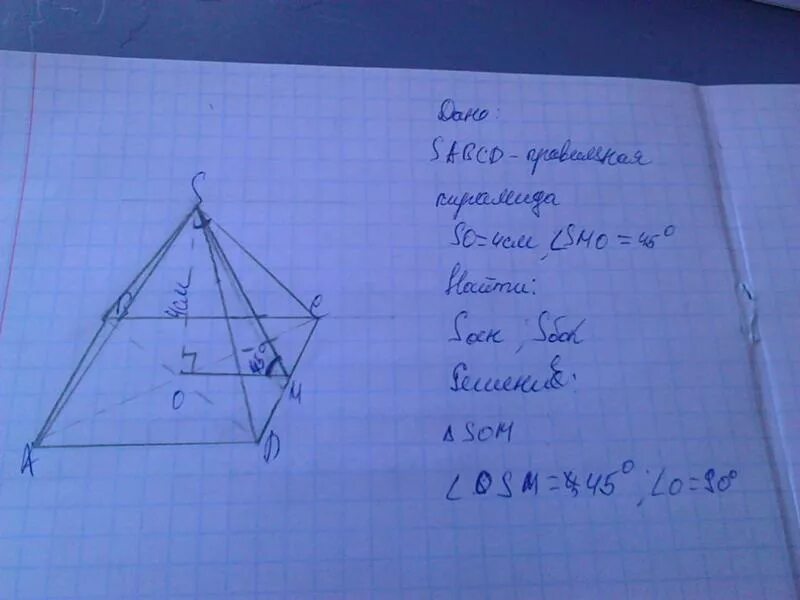 Дано:
SABCD - правильная
пирамида
SO = 4см, ∠SMO = 45°
Найти:
Sосн ; Sбок
Решение:
△SOM
∠OSM = 45° ; ∠O = 90°
S
4см
C
45°
M
O
A
D